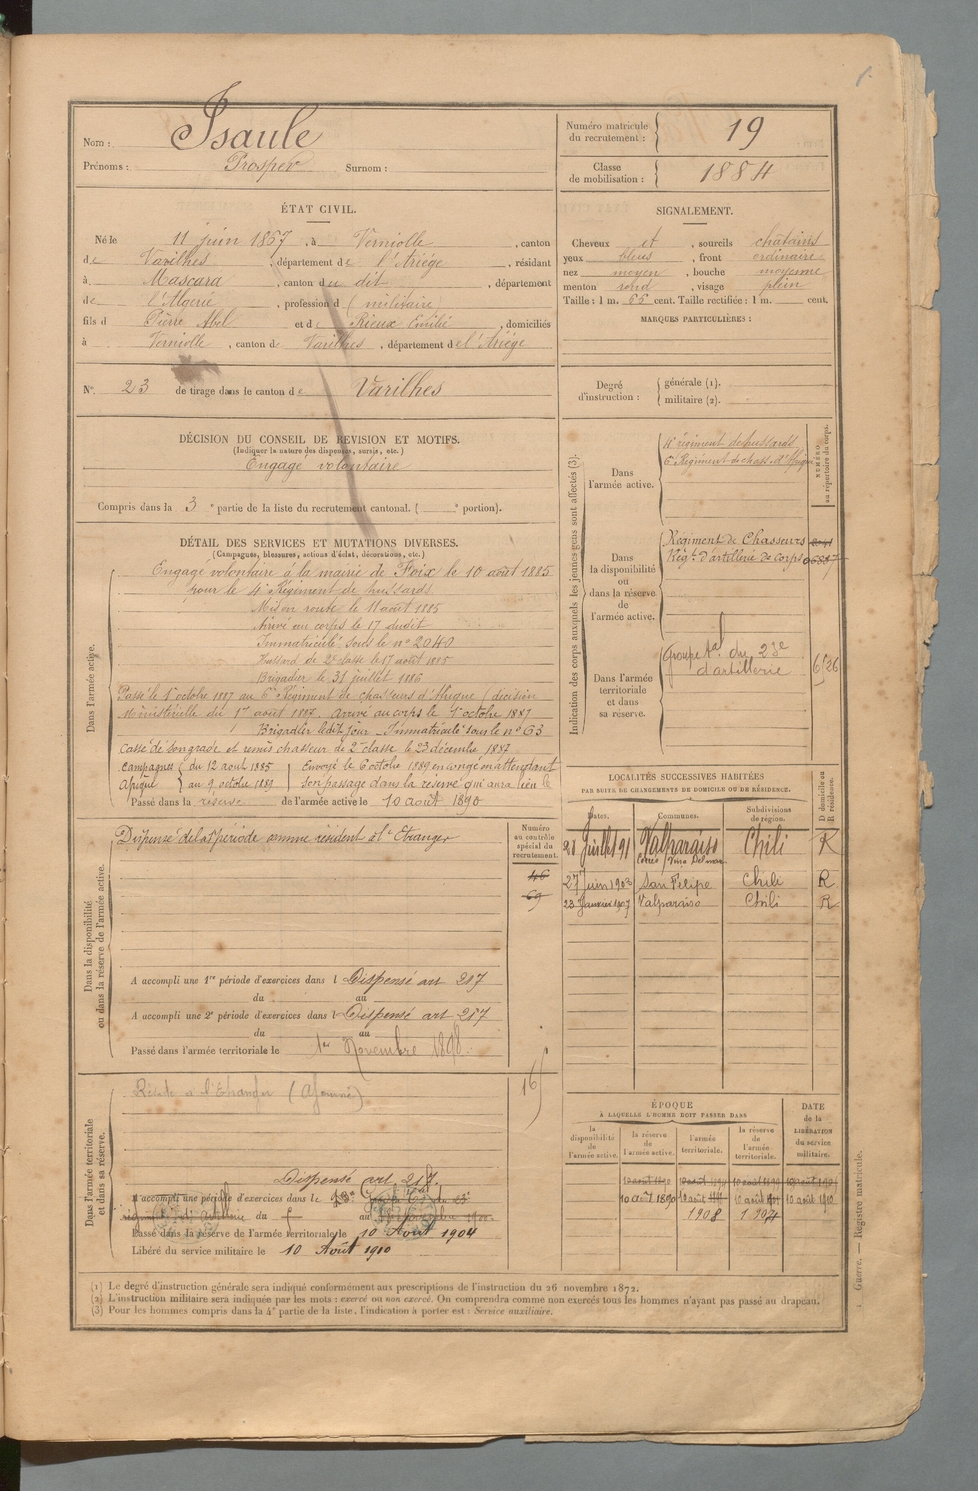 Nom : Isaule
Prénoms : Prosper Surnom :
Numéro matricule du recrutement : 19
Classe de mobilisation : 1884
ÉTAT CIVIL.
Né le 11 juin 1867, à Verniolle, canton
de Varilhes, département de l'Ariége, résidant
à Mascara, canton du dit, département
de l'Algerie, profession d (militaire)
fils d Pierre Abel et de Rieux Emilie, domiciliés
à Verniolle, canton de Varilhes, département de l'Ariége
N° 23 de tirage dans le canton de Varilhes
SIGNALEMENT.
Cheveux et, sourcils chatains
yeux bleus, front ordinaire
nez moyen, bouche moyenne
menton rond, visage plein
Taille : 1 m. 66 cent. Taille rectifiée : 1 m. cent.
MARQUES PARTICULIÈRES :
Degré d'instruction : générale (1).
militaire (2).
DÉCISION DU CONSEIL DE REVISION ET MOTIFS.
(Indiquer la nature des dispenses, sursis, etc.)
Engagé volontaire
Compris dans la 3e partie de la liste du recrutement cantonal. ( e portion).
DÉTAIL DES SERVICES ET MUTATIONS DIVERSES.
(Campagnes, blessures, actions d'éclat, décorations, etc.)
Dans l'armée active.
Engagé volontaire à la mairie de Foix le 10 août 1885
pour le 4e Régiment de hussards
Mis en route le 11 août 1885
Arrivé au corps le 17 dudit
Immatriculé sous le n° 2040
Hussard de 2e classe le 17 août 1885
Brigadier le 31 juillet 1886
Passé le 1er octobre 1887 au 6e Régiment de chasseurs d'Afrique (décision
Ministérielle du 1er août 1887. Arrivé au corps le 1er octobre 1887
Brigadier ledit jour. Immatriculé sous le n° 63
Cassé de son grade et remis chasseur de 2me classe le 23 décembre 1887
Campagnes du 12 août 1885
Afrique au 9 octobre 1889
Envoyé le 6 octobre 1889 en congé en attendant
son passage dans la réserve qui aura lieu le
Passé dans la réserve de l'armée active le 10 août 1890
Indication des corps auxquels les jeunes gens sont affectés (3).
NUMÉRO au répertoire du corps.
Dans l'armée active.
4e régiment de hussards
6e Régiment de chass. d'Afrique
Dans la disponibilité ou dans la réserve de l'armée active.
Régiment de Chasseurs
Régt. d'artillerie de corps
Dans l'armée territoriale et dans sa réserve.
Groupe tal du 23e
d'artillerie
LOCALITÉS SUCCESSIVES HABITÉES
PAR SUITE DE CHANGEMENTS DE DOMICILE OU DE RÉSIDENCE.
D domicile ou R résidence.
Dates. Communes. Subdivisions de région.
21 Juillet 91 Valparaiso Chili R
Cerro Vina Del mar
27 Juin 1903 San Felipe Chili R
23 Janvier 1907 Valparaiso Chili R
Dans la disponibilité ou dans la réserve de l'armée active.
Numéro au contrôle spécial du recrutement.
46
69
Dispensé de la 1e période comme résident à l'Etranger
A accompli une 1re période d'exercices dans l Dispensé art 217
du au
A accompli une 2e période d'exercices dans l Dispensé art 217
du au
Passé dans l'armée territoriale le 1er Novembre 1898.
Dans l'armée territoriale et dans sa réserve.
Réside à l'Etranger (Ajourné)
Dispensé art. 217.
A accompli une période d'exercices dans le
du au
Passé dans la réserve de l'armée territoriale le 10 Août 1904
Libéré du service militaire le 10 Août 1910
ÉPOQUE
À LAQUELLE L'HOMME DOIT PASSER DANS
DATE de la LIBÉRATION du service militaire.
la disponibilité de l'armée active.
la réserve de l'armée active.
l'armée territoriale.
la réserve de l'armée territoriale.
10 août 1890
10 août 1910
1908
(1) Le degré d'instruction générale sera indiqué conformément aux prescriptions de l'instruction du 26 novembre 1872.
(2) L'instruction militaire sera indiquée par les mots : exercé ou non exercé. On comprendra comme non exercés tous les hommes n'ayant pas passé au drapeau.
(3) Pour les hommes compris dans la 4e partie de la liste, l'indication à porter est : Service auxiliaire.
Guerre. — Registre matricule.